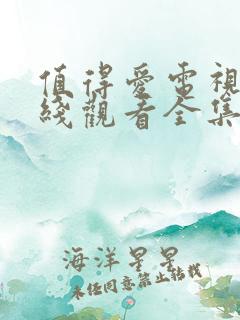 值得爱電視
綫觀看全集
海洋星星
未经同意禁止转载